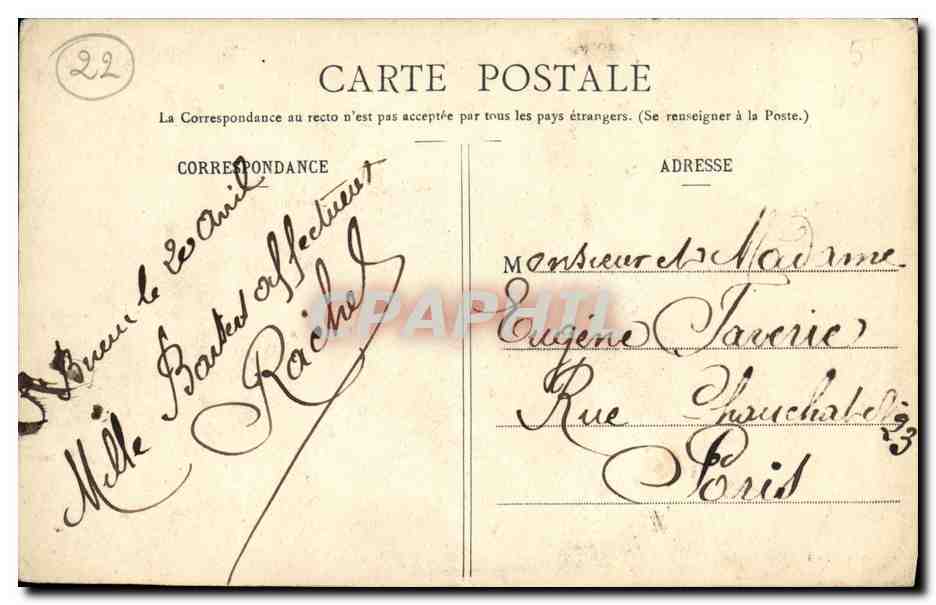 22
5
CARTE POSTALE
La Correspondance au recto n'est pas acceptée par tous les pays étrangers. (Se renseigner à la Poste.)
CORRESPONDANCE
St Brieuc le 20 avril
Mille
affectueux
Rachel
ADRESSE
Monsieur et Madame
Eugène Taverie
Rue Chauchat 23
Paris
CPAPHIL